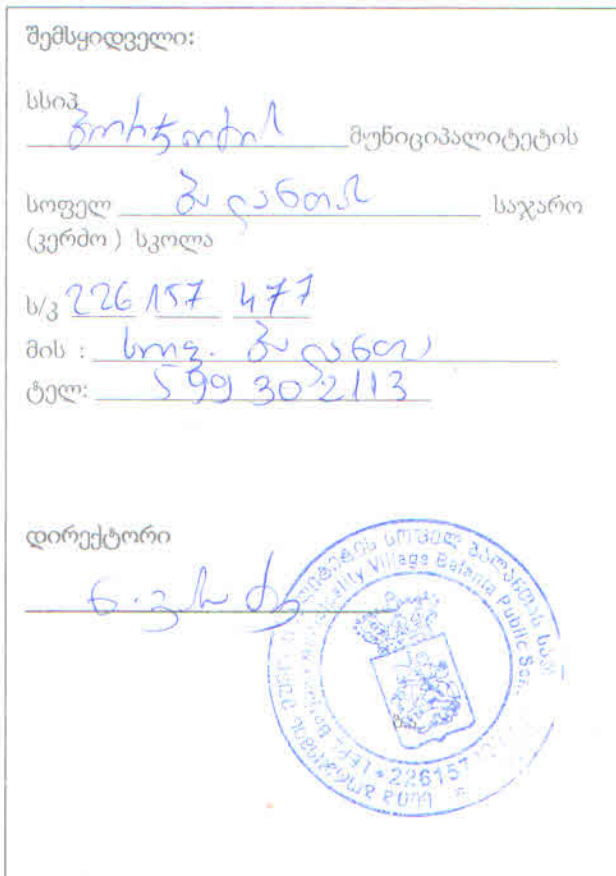 შემსყიდველი:
სსიპ
ბორჯომის მუნიციპალიტეტის
სოფელ ბალანთას საჯარო
(კერძო ) სკოლა
ს/კ 226 157 477
მის : სოფ. ბალანთა
ტელ: 599 30 2113
დირექტორი
ნ.
სოფელ ბალანთას
Village Balanta Public
* 226157